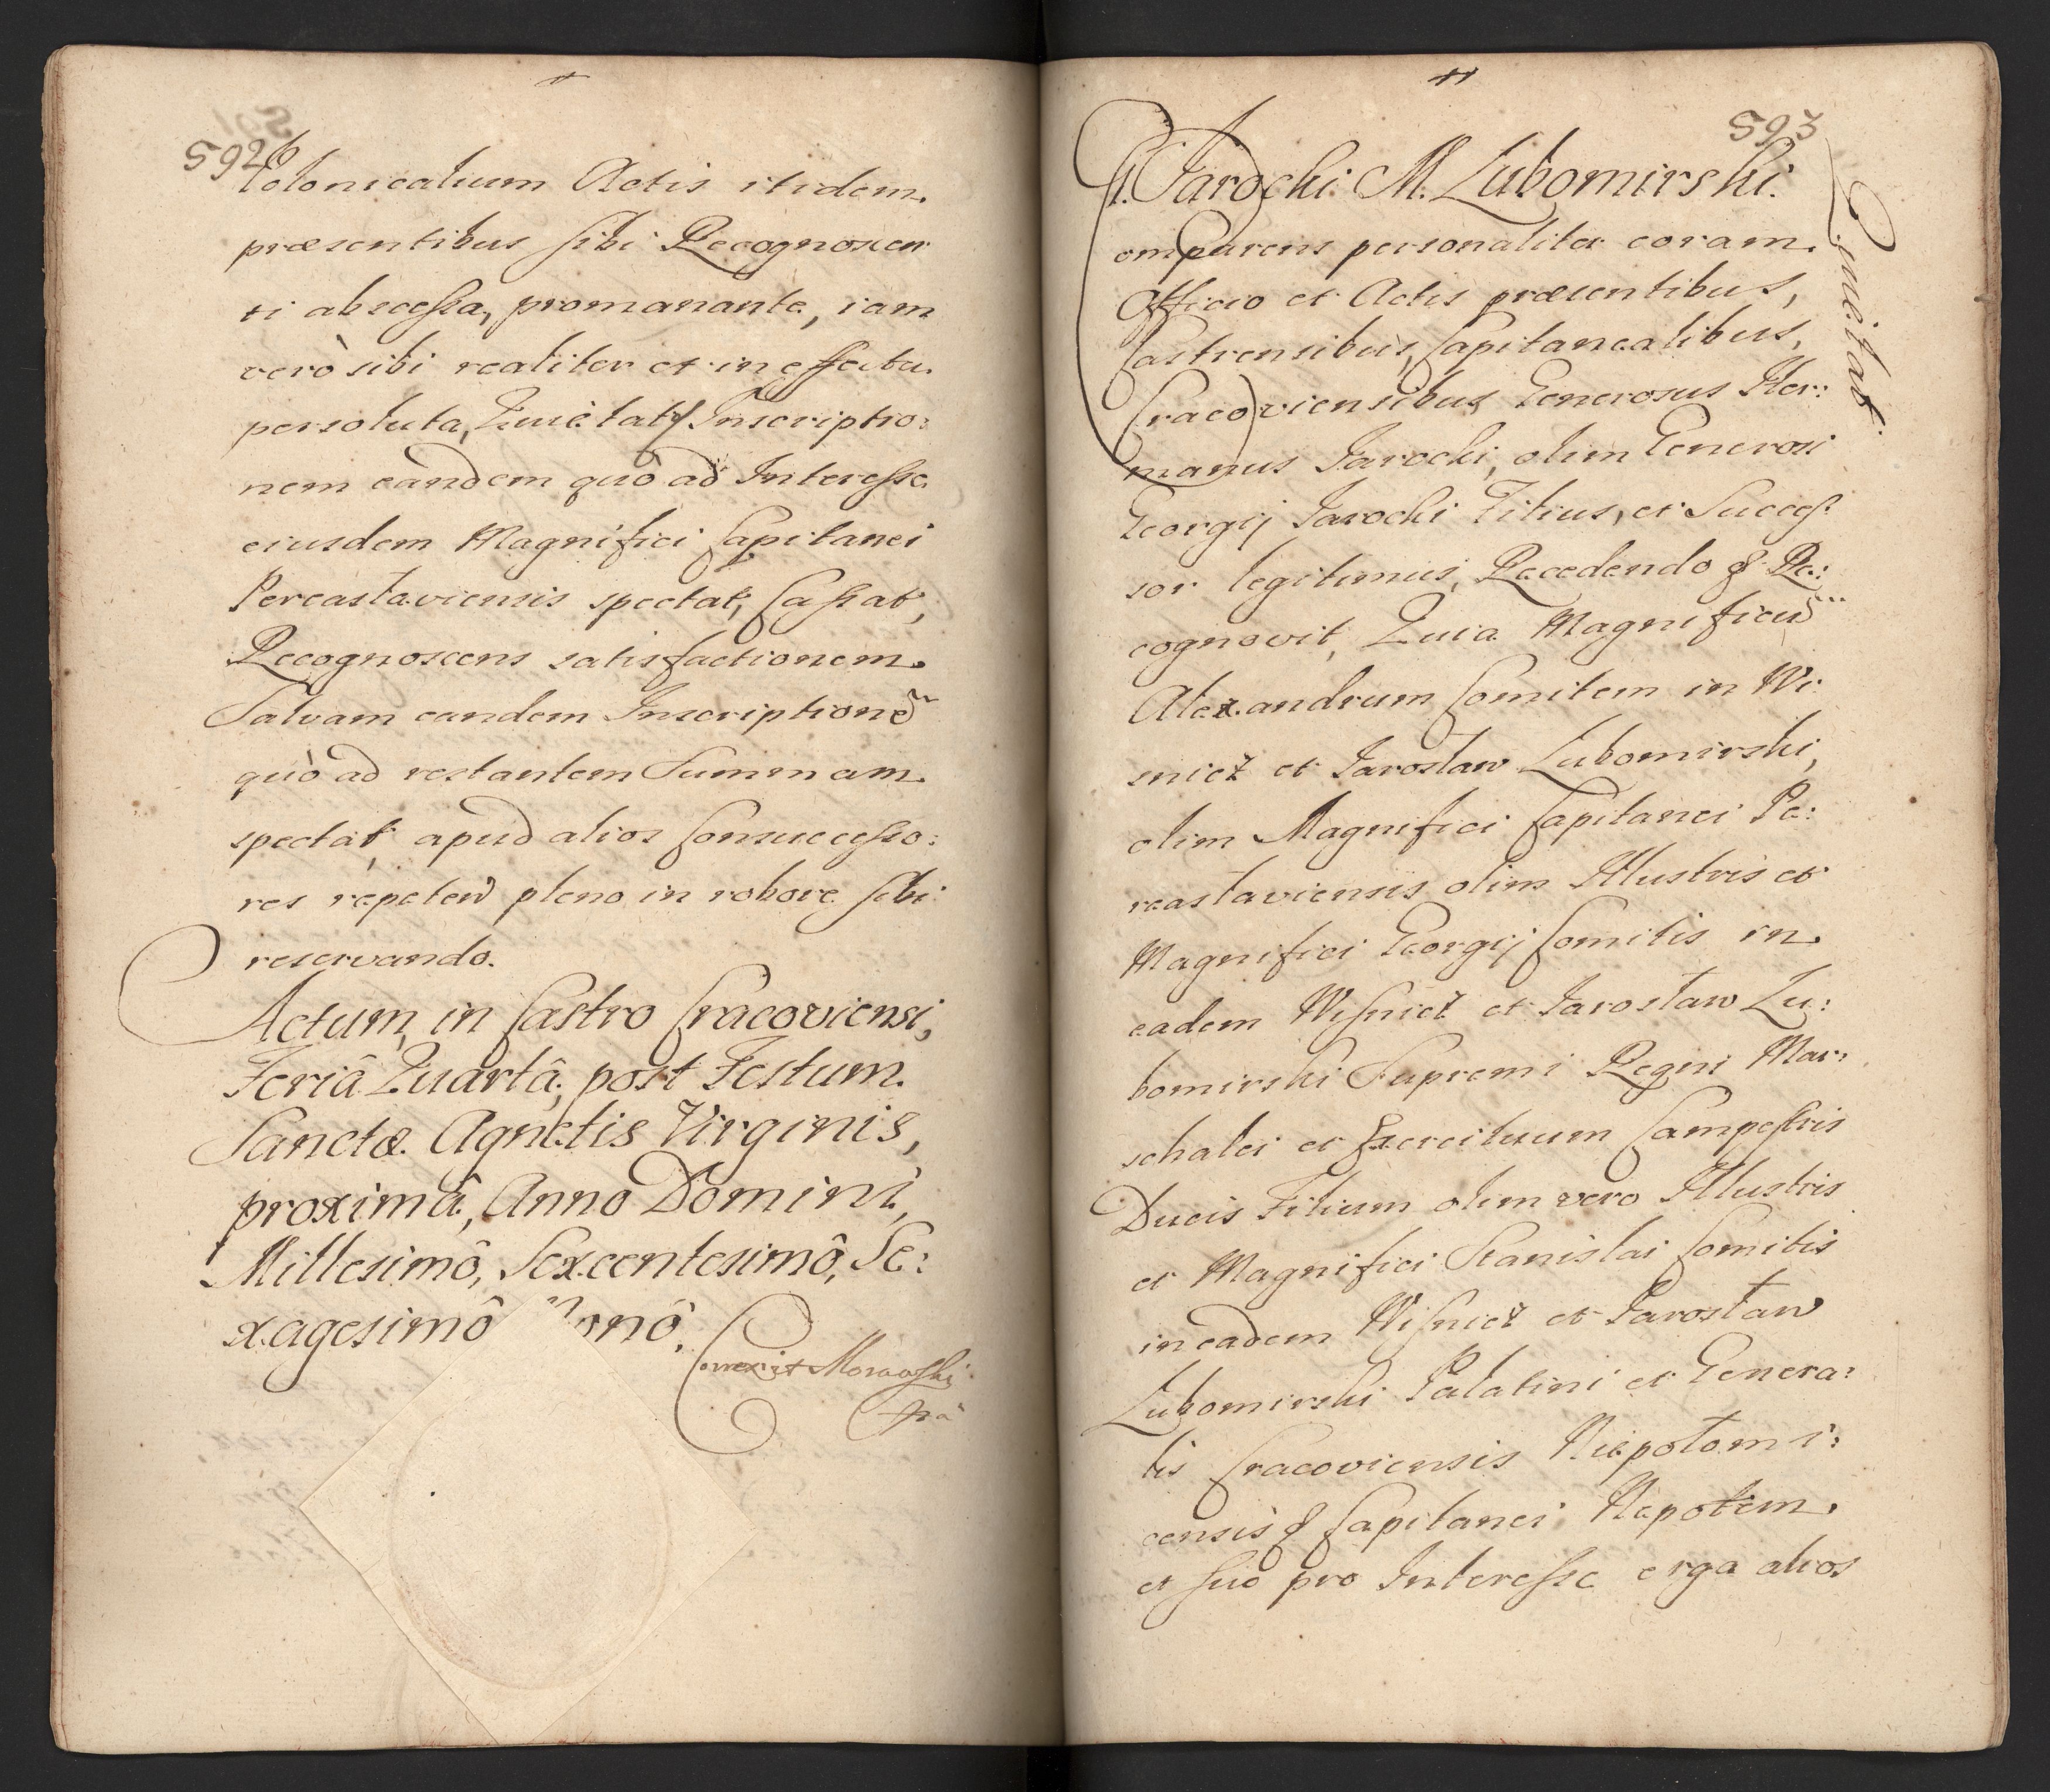 592
Colonicalium Actis itidem
præsentibus sibi Recognoscen
ti abscessa, promanante, iam
verò sibi realiter et in effectu
persoluta, Quietat, Inscriptio:
nem eandem quò ad Interesse
eiusdem Magnifici Capitanei
Pereasłaviensis spectat, Cassat,
Recognoscens satisfactionem.
Salvam eandem Inscriptionē
quò ad restantem Summam
spectat, apud alios Consuccesso:
res repeteñ pleno in robore sibi
reservando.
Actum, in Castro Cracoviensi,
Feriâ Quartâ, post Festum
Sanctæ Agnetis Virginis,
proximâ, Anno Domini,
Millesimô, Sexcentesimô, Se:
xagesimô Nonô.
Correxit Morawski
593
G. Jarocki M. Lubomirski.
Quietat.
Comparens personaliter coram
Officio et Actis præsentibus,
Castrensibus, Capitanealibus,
Cracoviensibus Generosus Her:
manus Jarocki, olim Generosi
Georgij Jarocki Filius, et Succes
sor legitimus, Recedendo & Re:
cognovit, Quia Magnificū
Alexandrum Comitem in Wi
snicz et Jarosław Lubomirski,
olim Magnifici Capitanei Pe:
reasłaviensis olim Illustris et
Magnifici Georgij Comitis in
eadem Wisnicz et Jarosław Lu:
bomirski Supremi Regni Mar:
schalci et Exercituum Campestris
Ducis Filium olim vero Illustris
et Magnifici Stanislai Comitis
in eadem Wisnicz et Jarosław
Lubomirski Palatini et Genera:
lis Cracoviensis Niepołomi:
censis & Capitanei Nepotem
et suo pro Interesse erga alios